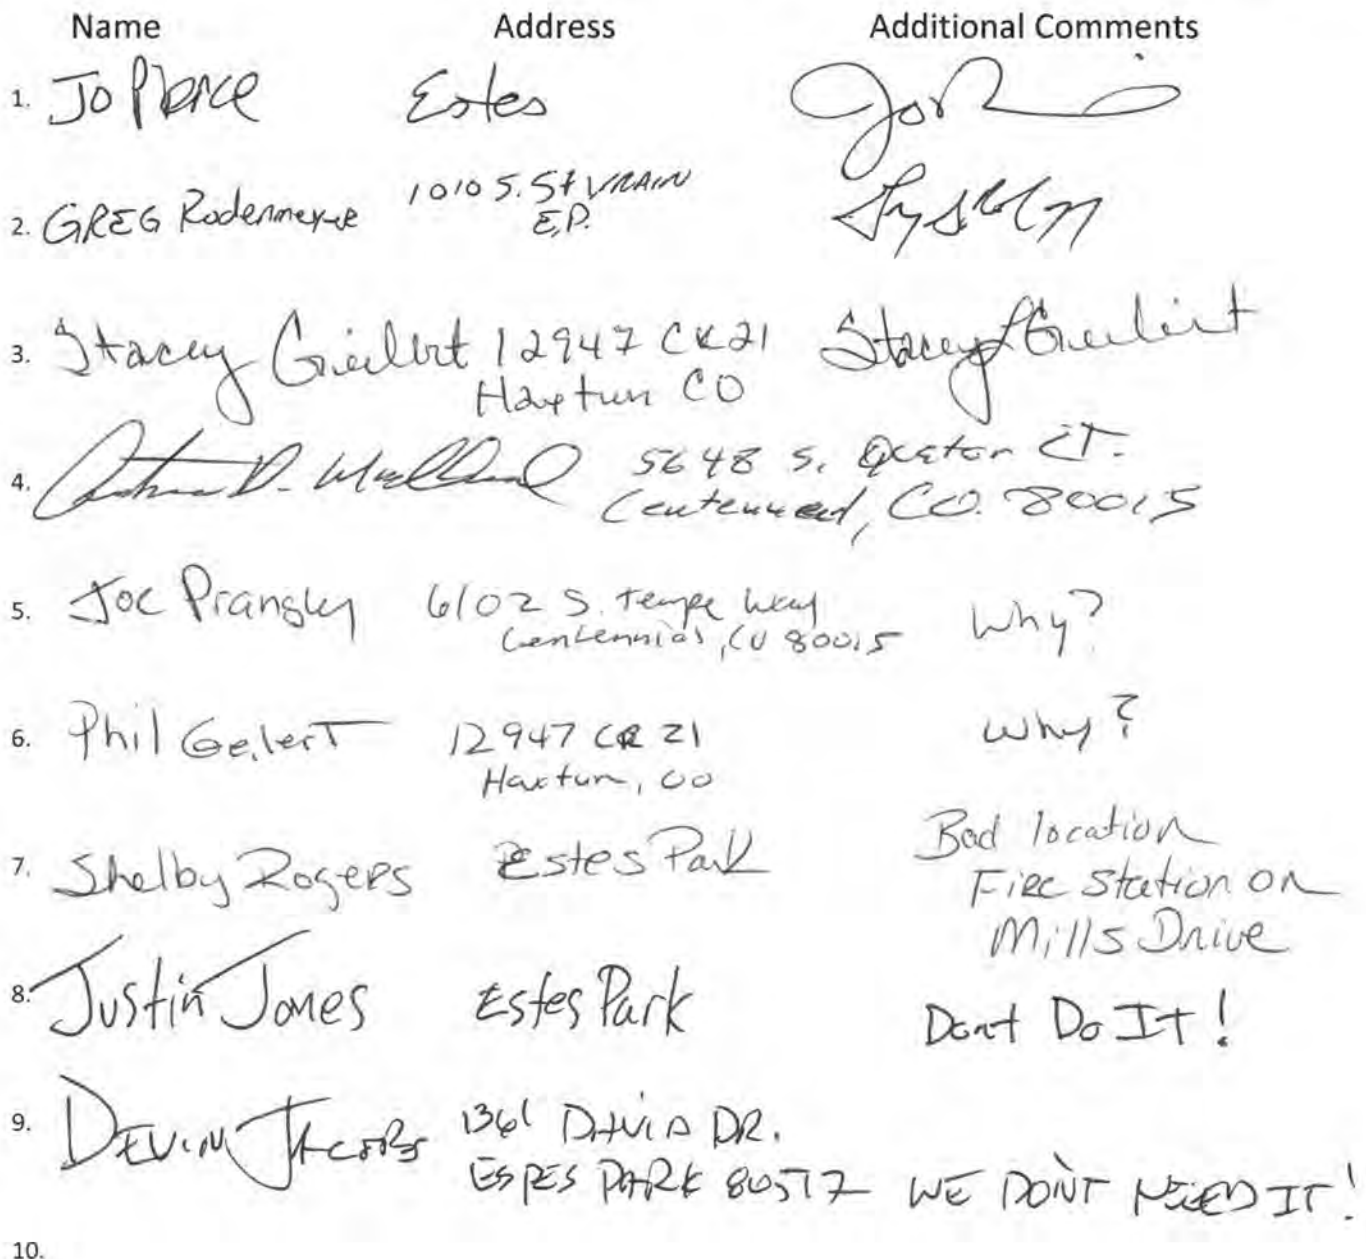 Name Address Additional Comments
1. Jo Pierce Estes
2. GREG Rodenmeyer 1010 S. St VRAIN
E.P.
3. Stacey Gielert 12947 CR 21 Stacey Gielert
Haxtun CO
4. D. 5648 S. CT.
Centennial, CO. 80015
5. Joe Pransky 6102 S. Tempe Way Why?
Centennial, CO 80015
6. Phil Geilert 12947 CR 21 Why?
Haxtun, CO
7. Shelby Rogers Estes Park Bad location
Fire Station on
Mills Drive
8. Justin Jones Estes Park Dont Do It!
9. DEVIN JACOBS 1361 DAVID DR.
ESPES PARK 80517 WE DON'T NEED IT!
10.